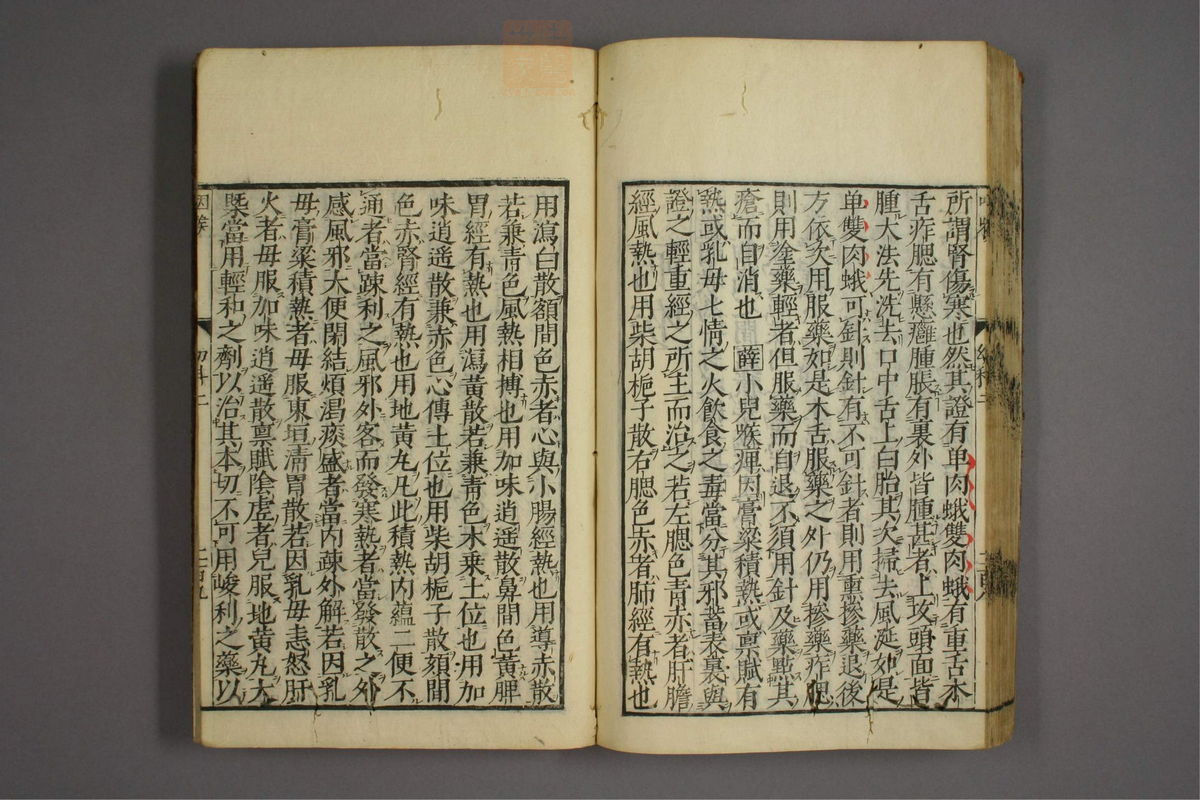 所謂腎傷寒也然其證有单肉蛾雙肉蛾有重舌木
舌痄腮有懸癰腫脹有裏外皆腫甚者上攻頭面皆
腫大法先洗去口中舌上白胎其次掃去風涎如是
单雙肉蛾可針則針有不可針者則用熏摻藥退後
方依次用服藥如是木舌服藥之外仍用摻藥痄腮
則用塗藥輕者但服藥而自退不須用針及藥點其
瘡而自消也 薛小兒喉痺因膏粱積熱或禀賦有
熱或乳母七情之火飲食之毒當分其邪蓄表裏與
證之輕重經之所主而治之若左腮色青赤者肝膽
經風熱也用柴胡梔子散右腮色赤者肺經有熱也
用瀉白散額間色赤者心與小腸經熱也用導赤散
若兼青色風熱相搏也用加味逍遥散鼻間色黃脾
胃經有熱也用瀉黃散若兼青色木乗土位也用加
味逍遥散兼赤色心傳土位也用柴胡梔子散頦間
色赤腎經有熱也用地黃丸凡此積熱内蘊二便不
通者當疎利之風邪外客而發寒熱者當發散之外
感風邪大便閉結煩渴痰盛者當内疎外解若因乳
母膏粱積熱者母服東垣清胃散若因乳母恚怒肝
火者母服加味逍遥散禀賦陰虚者兒服地黃丸大
槩當用輕和之劑以治其本切不可用峻利之藥以
幼科二